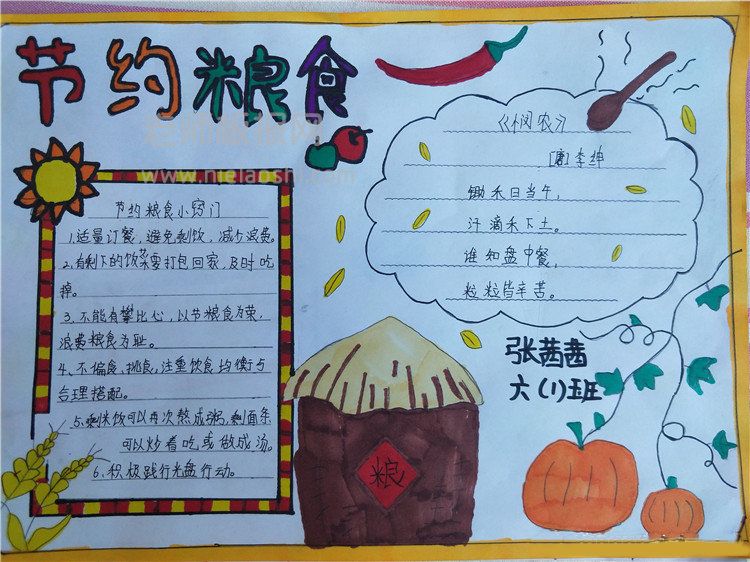 节约粮食
老师板报网
www.nielaoshi.com
节约粮食小窍门
1.适量订餐，避免剩饭，减少浪费。
2.有剩下的饭菜要打包回家，及时吃
掉。
3、不能有攀比心，以节粮食为荣，
浪费粮食为耻。
4、不偏食、挑食，注重饮食均衡与
合理搭配。
5.剩米饭可以再次熬成粥，剩面条
可以炒着吃或做成汤。
6、积极践行光盘行动。
《悯农》
[唐]李绅
锄禾日当午，
汗滴禾下土。
谁知盘中餐，
粒粒皆辛苦。
张茜茜
六(1)班
粮